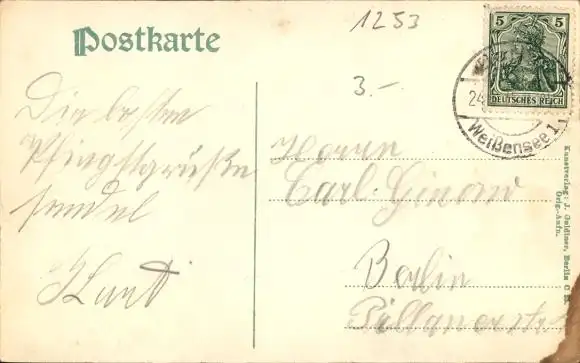 Postkarte
1253
3.-
5 5
DEUTSCHES REICH
24.
Weißensee 1.
Die besten
Pfingstgrüße
sendet
Kurt
Herrn
Carl
Berlin
Kunstverlag: J. Goldiner, Berlin C
Orig.-Aufn.